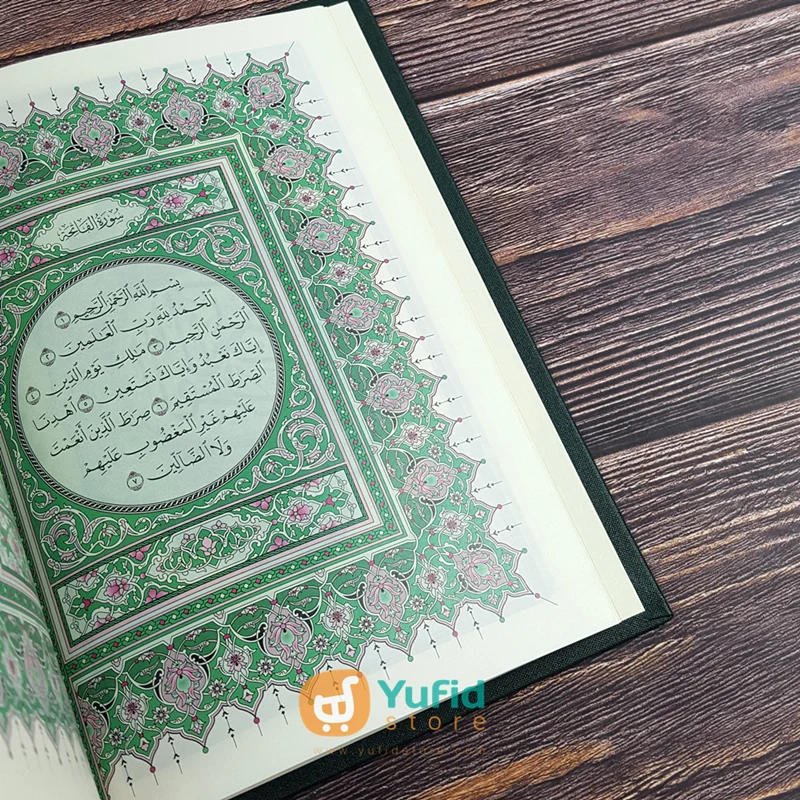 سُورَةُ الفَاتِحَةِ
بِسْمِ ٱللَّهِ ٱلرَّحْمَٰنِ ٱلرَّحِيمِ ۝١
ٱلْحَمْدُ لِلَّهِ رَبِّ ٱلْعَٰلَمِينَ ۝٢
ٱلرَّحْمَٰنِ ٱلرَّحِيمِ ۝٣ مَٰلِكِ يَوْمِ ٱلدِّينِ ۝٤
إِيَّاكَ نَعْبُدُ وَإِيَّاكَ نَسْتَعِينُ ۝٥ ٱهْدِنَا
ٱلصِّرَٰطَ ٱلْمُسْتَقِيمَ ۝٦ صِرَٰطَ ٱلَّذِينَ أَنْعَمْتَ
عَلَيْهِمْ غَيْرِ ٱلْمَغْضُوبِ عَلَيْهِمْ
وَلَا ٱلضَّآلِّينَ ۝٧
Yufid
store
www.yufidstore.com